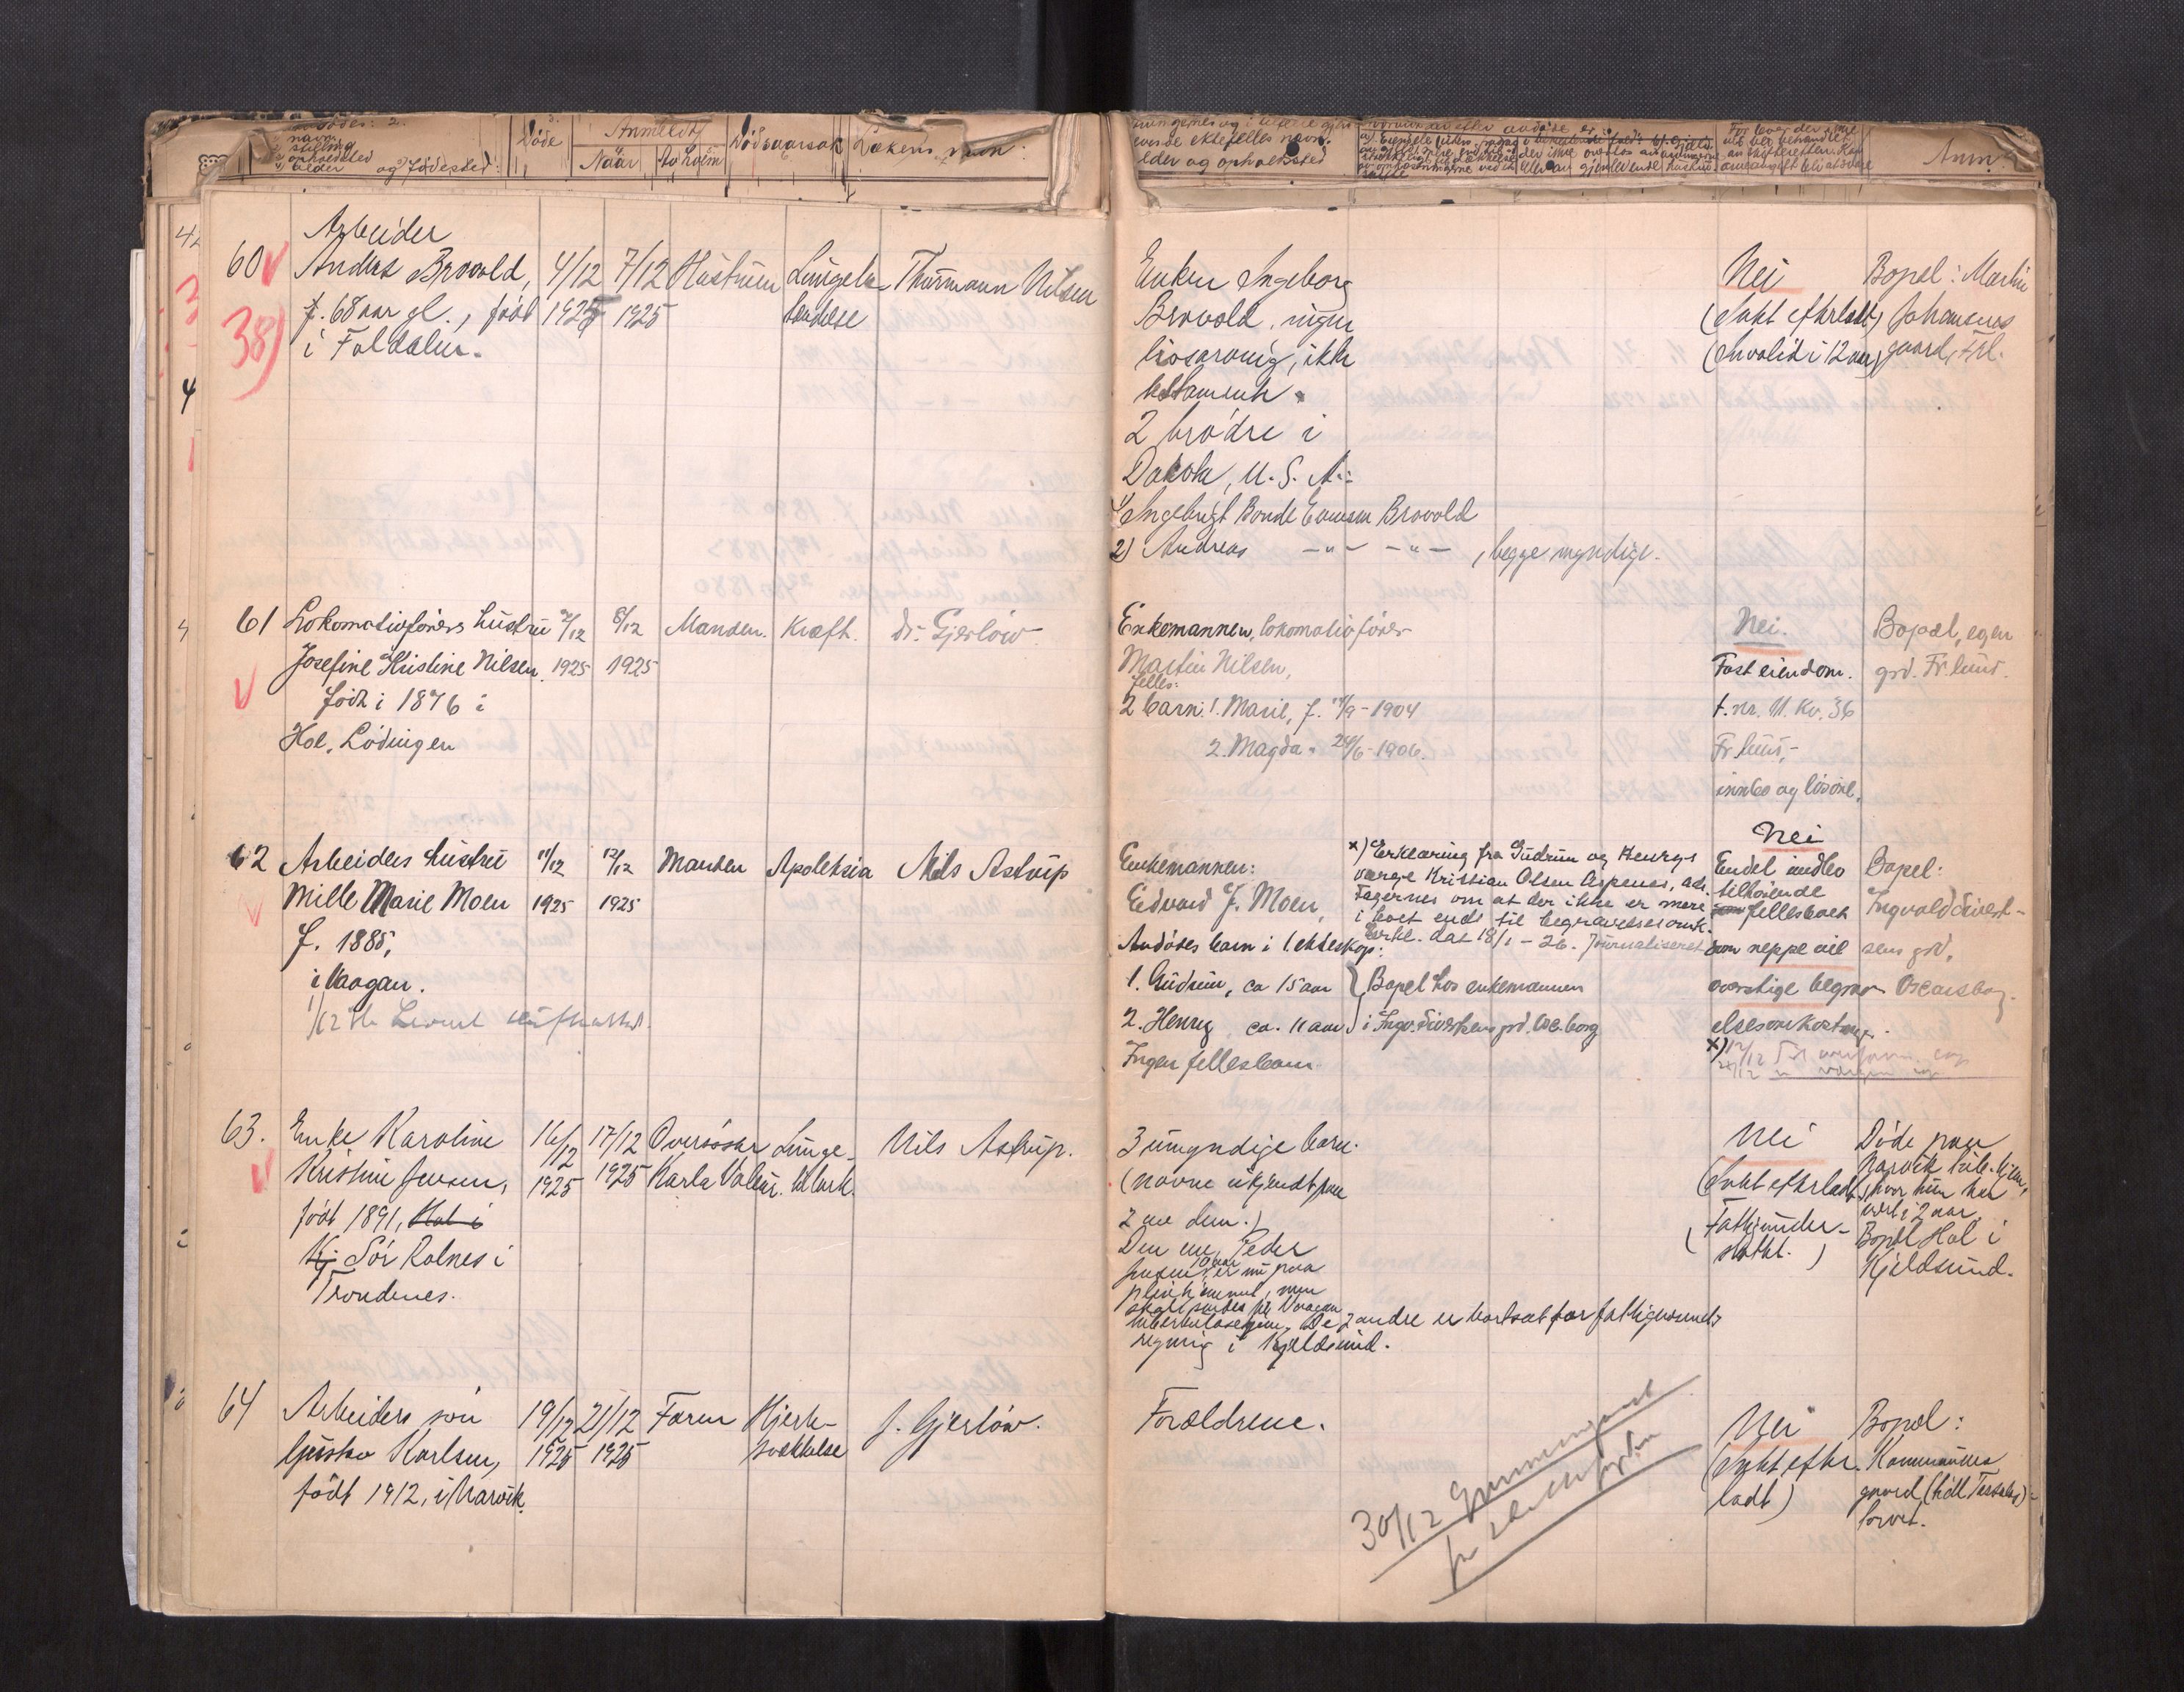 Døde
Anmeldt
Naar
Av hvem
Dødsaarsak
Lækens navn:
stilling
alder og fødested:
alder og opholdssted
Anm.
60 Arbeider
Anders Brovold,
f. 68 aar gl., født
i Foldalen.
4/12 1925
7/12 1925
Hustruen
Lungebe-
tendelse
Thormann Nilsen
Enken Ingeborg
Brovold, ingen
livsarving, ikke
testamente.
2 brødre i
Dakota, U.S.A.:
1) Ingebrigt Bonde Brovold
2) Andreas —"— —"—, begge myndige.
Nei
(Intet efterladt)
(Invalid i 12 aar)
Bopel: Martin
Johansens
gaard,
38)
61 Lokomotivførers hustru
Josefine Kristine Nilsen.
født i 1876 i
Hol, Lødingen
1925
8/12 1925
Manden.
Kræft.
dr. Gjerløw
Enkemannen, lokomotivfører
Martin Nilsen,
felles:
2 barn: 1. Marie, f. 1904
2. Magda " 24/6-1906.
Nei.
Fast eiendom.
t.nr. 11. Kv. 36
Fr.lund,-
innbo og løsøre.
Bopæl, egen
grd. Fr.lund.
62 Arbeiders hustru
Mille Marie Moen
f. 1885,
i Vaagan.
11/12 1925
12/12 1925
Manden
Apoleksia
Nils Astrup
Enkemannen:
Edvard J. Moen,
Avdødes barn i 1. ekteskap:
1. Gudrun, ca 15 aar
2. Henry ca. 11 aar
Bopel hos enkemannen
i Ingv. Sivertsens grd. Osc.borg
Ingen fellesbarn
x) Erklæring fra Gudrun og Henrys
verge Kristian Olsen Aspenes, adr.
Fagernes om at der ikke er mere
i boet end til begravelsesomk.
Erkl. dat 18/1 - 26. Journaliseret
Nei
Endel indbo
tilhørende
fellesboet
som neppe vil
overstige begrav-
elsesomkostng.
x)
Bopel:
Ingvald Sivert-
sens grd.
Oscarsborg.
63. Enke Karoline
Kristine Jensen,
født 1891, Hol i
Kj. Sør Rolnes i
Trondenes.
16/12 1925
17/12 1925
Oversøster
Karla Valeur.
Lunge-
Nils Astrup.
3 umyndige barn.
(navne ukjendt paa
2 av dem.)
Den ene, Peder
Jensen, 10 aar er nu paa
pleiehjemmet, men
skal sendes til Vaagan
tuberkulosehjem. De 2 andre er bortsat for fattigvæsenets
regning i Kjeldsund.
Nei
(Intet efterladt)
(Fattigunder-
støttet.)
Døde paa
Narvik tub.hjem,
hvor hun har
vært i 2 aar.
Bopel Hol i
Kjeldsund.
64 Arbeiders søn
Gustav Karlsen,
født 1912, i Narvik.
19/12 1925
21/12 1925
Faren
Hjerte-
svekkelse
J. Gjerløw.
Forældrene.
30/12 Gjennemgaat
Nei
(Intet efter-
ladt)
Bopæl:
Kommunens
gaard
torvet.